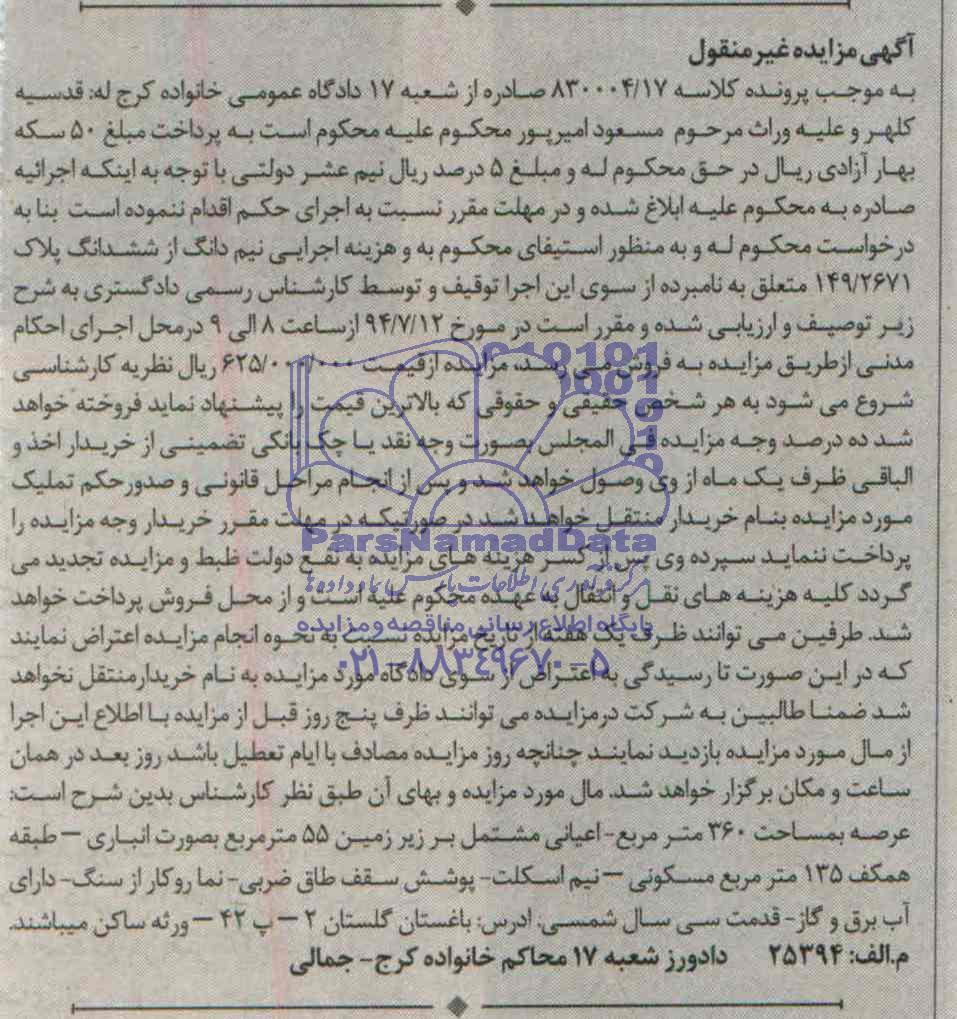 آگهی مزایده غیر منقول
به موجب پرونده کلاسه ۸۳۰۰۰۴/۱۷ صادره از شعبه ۱۷ دادگاه عمومی خانواده کرج له: قدسیه
کلهر و علیه وراث مرحوم مسعود امیرپور محکوم علیه محکوم است به پرداخت مبلغ ۵۰ سکه
بهار آزادی ریال در حق محکوم له و مبلغ ۵ درصد ریال نیم عشر دولتی با توجه به اینکه اجرائیه
صادره به محکوم علیه ابلاغ شده و در مهلت مقرر نسبت به اجرای حکم اقدام ننموده است بنا به
درخواست محکوم له و به منظور استیفای محکوم به و هزینه اجرایی نیم دانگ از ششدانگ پلاک
۱۴۹/۲۶۷۱ متعلق به نامبرده از سوی این اجرا توقیف و توسط کارشناس رسمی دادگستری به شرح
زیر توصیف و ارزیابی شده و مقرر است در مورخ ۹۴/۷/۱۲ ازساعت ۸ الی ۹ درمحل اجرای احکام
مدنی ازطریق مزایده به فروش می رسد، مزایده ازقیمت ۶۲۵/۰۰۰/۰۰۰ ریال نظریه کارشناسی
شروع می شود به هر شخص حقیقی و حقوقی که بالاترین قیمت را پیشنهاد نماید فروخته خواهد
شد ده درصد وجه مزایده فی المجلس بصورت وجه نقد یا چک بانکی تضمینی از خریدار اخذ و
الباقی ظرف یک ماه از وی وصول خواهد شد و پس از انجام مراحل قانونی و صدورحکم تملیک
مورد مزایده بنام خریدار منتقل خواهد شد در صورتیکه در مهلت مقرر خریدار وجه مزایده را
ParsNamadData
پرداخت ننماید سپرده وی پس از کسر هزینه های مزایده به نفع دولت ظبط و مزایده تجدید می
گردد کلیه هزینه های نقل و انتقال به عهده محکوم علیه است و از محل فروش پرداخت خواهد
پایگاه اطلاع رسانی مناقصه و مزایده
شد. طرفین می توانند ظرف یک هفته از تاریخ مزایده نسبت به نحوه انجام مزایده اعتراض نمایند
۰۲۱-۸۸۳۴۹۶۷۰-۵
که در این صورت تا رسیدگی به اعتراض از سوی دادگاه مورد مزایده به نام خریدارمنتقل نخواهد
شد ضمنا طالبین به شرکت درمزایده می توانند ظرف پنج روز قبل از مزایده با اطلاع این اجرا
از مال مورد مزایده بازدید نمایند چنانچه روز مزایده مصادف با ایام تعطیل باشد روز بعد در همان
ساعت و مکان برگزار خواهد شد. مال مورد مزایده و بهای آن طبق نظر کارشناس بدین شرح است:
عرصه بمساحت ۳۶۰ متر مربع-اعیانی مشتمل بر زیر زمین ۵۵ مترمربع بصورت انباری – طبقه
همکف ۱۳۵ متر مربع مسکونی – نیم اسکلت- پوشش سقف طاق ضربی- نما روکار از سنگ- دارای
آب برق و گاز- قدمت سی سال شمسی. ادرس: باغستان گلستان ۲ – پ ۴۲ – ورثه ساکن میباشند.
م.الف: ۲۵۳۹۴ دادورز شعبه ۱۷ محاکم خانواده کرج- جمالی